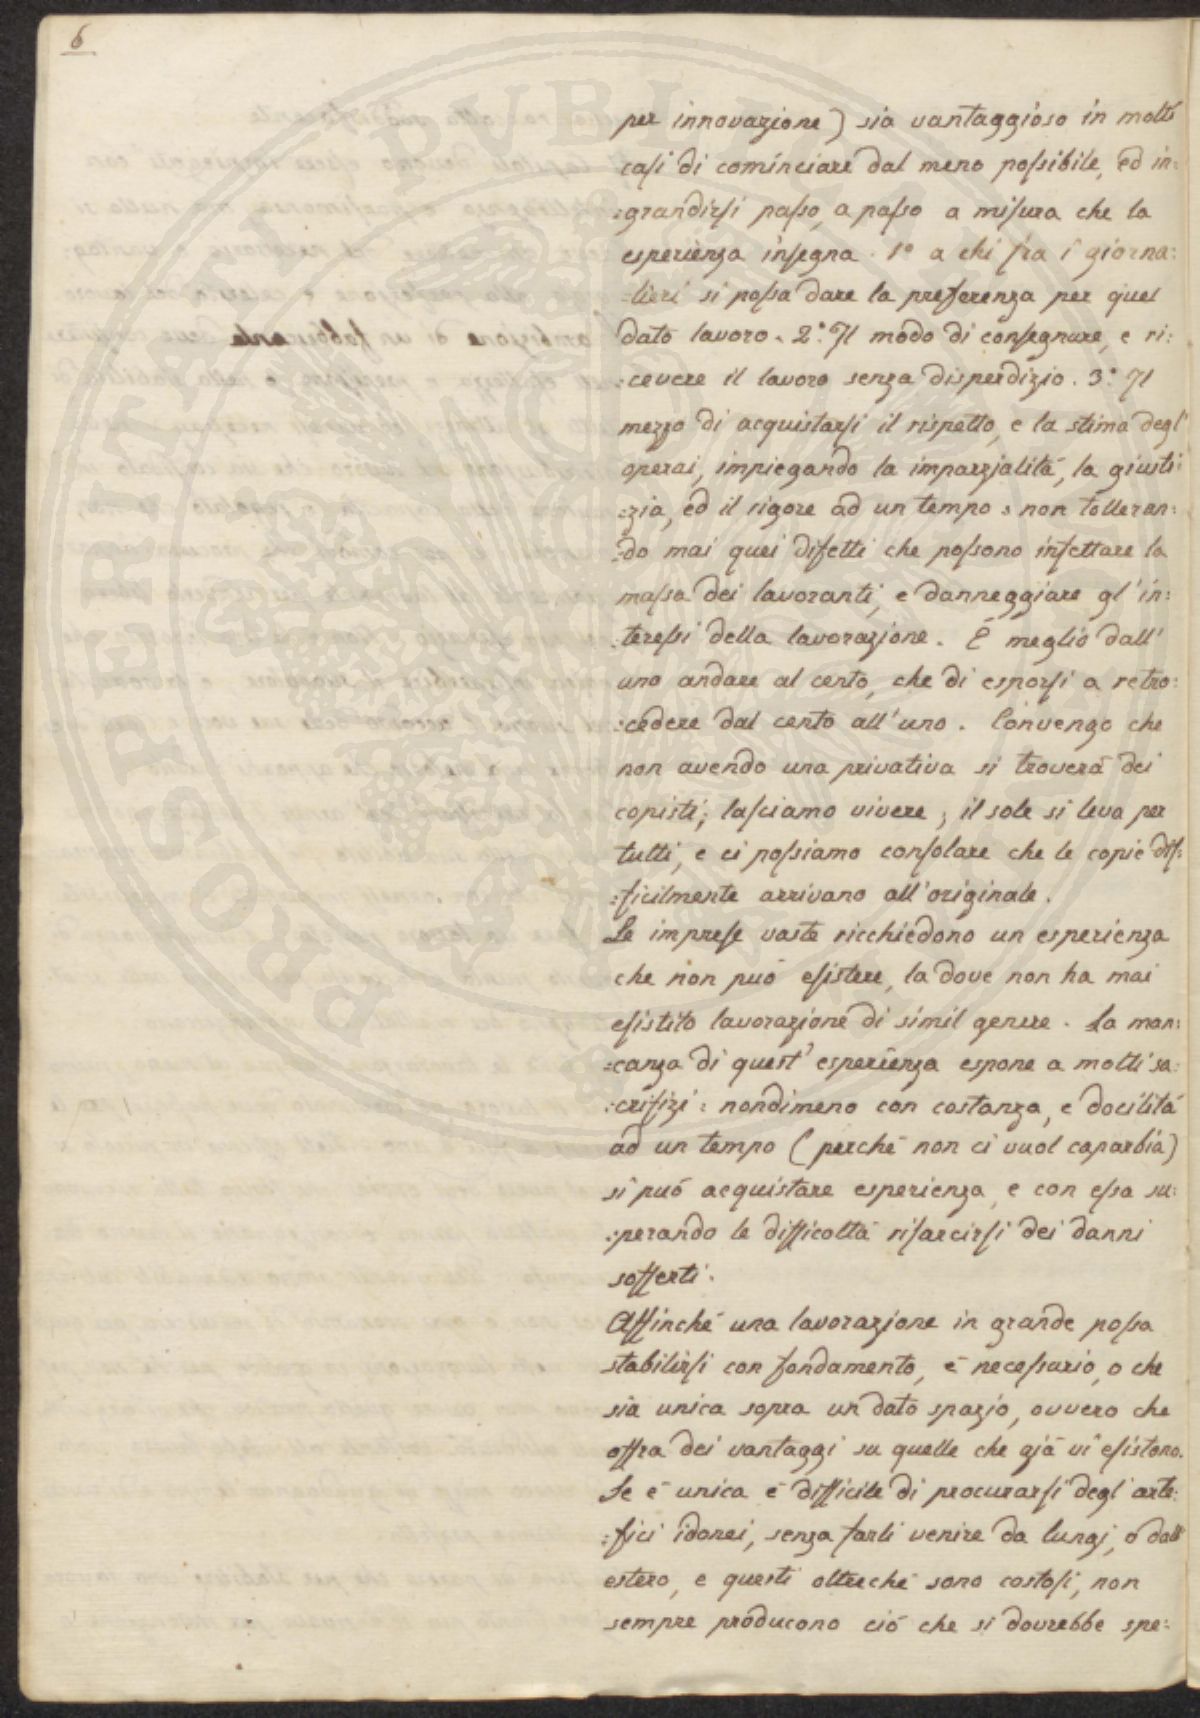 6
per innovazione) sia vantaggioso in molti
casi di cominciare dal meno possibile, ed in:
:grandirsi passo, a passo a misura che la
esperienza insegna. 1° a chi fra i giorna:
:lieri si possa dare la preferenza per quel
dato lavoro. 2.° Il modo di consegnare, e ri:
:cevere il lavoro senza disperdizio. 3.° Il
mezzo di acquistarsi il rispetto, e la stima degl'
operai, impiegando la imparzialità, la giusti:
:zia, ed il rigore ad un tempo: non tolleran:
:do mai quei difetti che possono infettare la
massa dei lavoranti, e danneggiare gl'in:
:teressi della lavorazione. È meglio dall'
uno andare al cento, che di esporsi a retro:
:cedere dal cento all'uno. Convengo che
non avendo una privativa si troverà dei
copisti; lasciamo vivere; il sole si leva per
tutti, e ci possiamo consolare che le copie dif:
:ficilmente arrivano all'originale.
Le imprese vaste ricchiedono un esperienza
che non può esistere, la dove non ha mai
esistito lavorazione di simil genere. La man:
:canza di quest'esperienza espone a molti sa:
:crifizi: nondimeno con costanza, e docilità
ad un tempo (perchè non ci vuol caparbia)
si può acquistare esperienza, e con essa su:
:perando le difficoltà risarcirsi dei danni
sofferti.
Affinchè una lavorazione in grande possa
stabilirsi con fondamento, è necessario, o che
sia unica sopra un dato spazio, ovvero che
offra dei vantaggi su quelle che già vi esistono.
Se è unica è difficile di procurarsi degl'arte:
:fici idonei, senza farli venire da lungi, o dall'
estero, e questi olterchè sono costosi, non
sempre producono ciò che si dovrebbe spe:
PROSPERITATI PUBLICAE